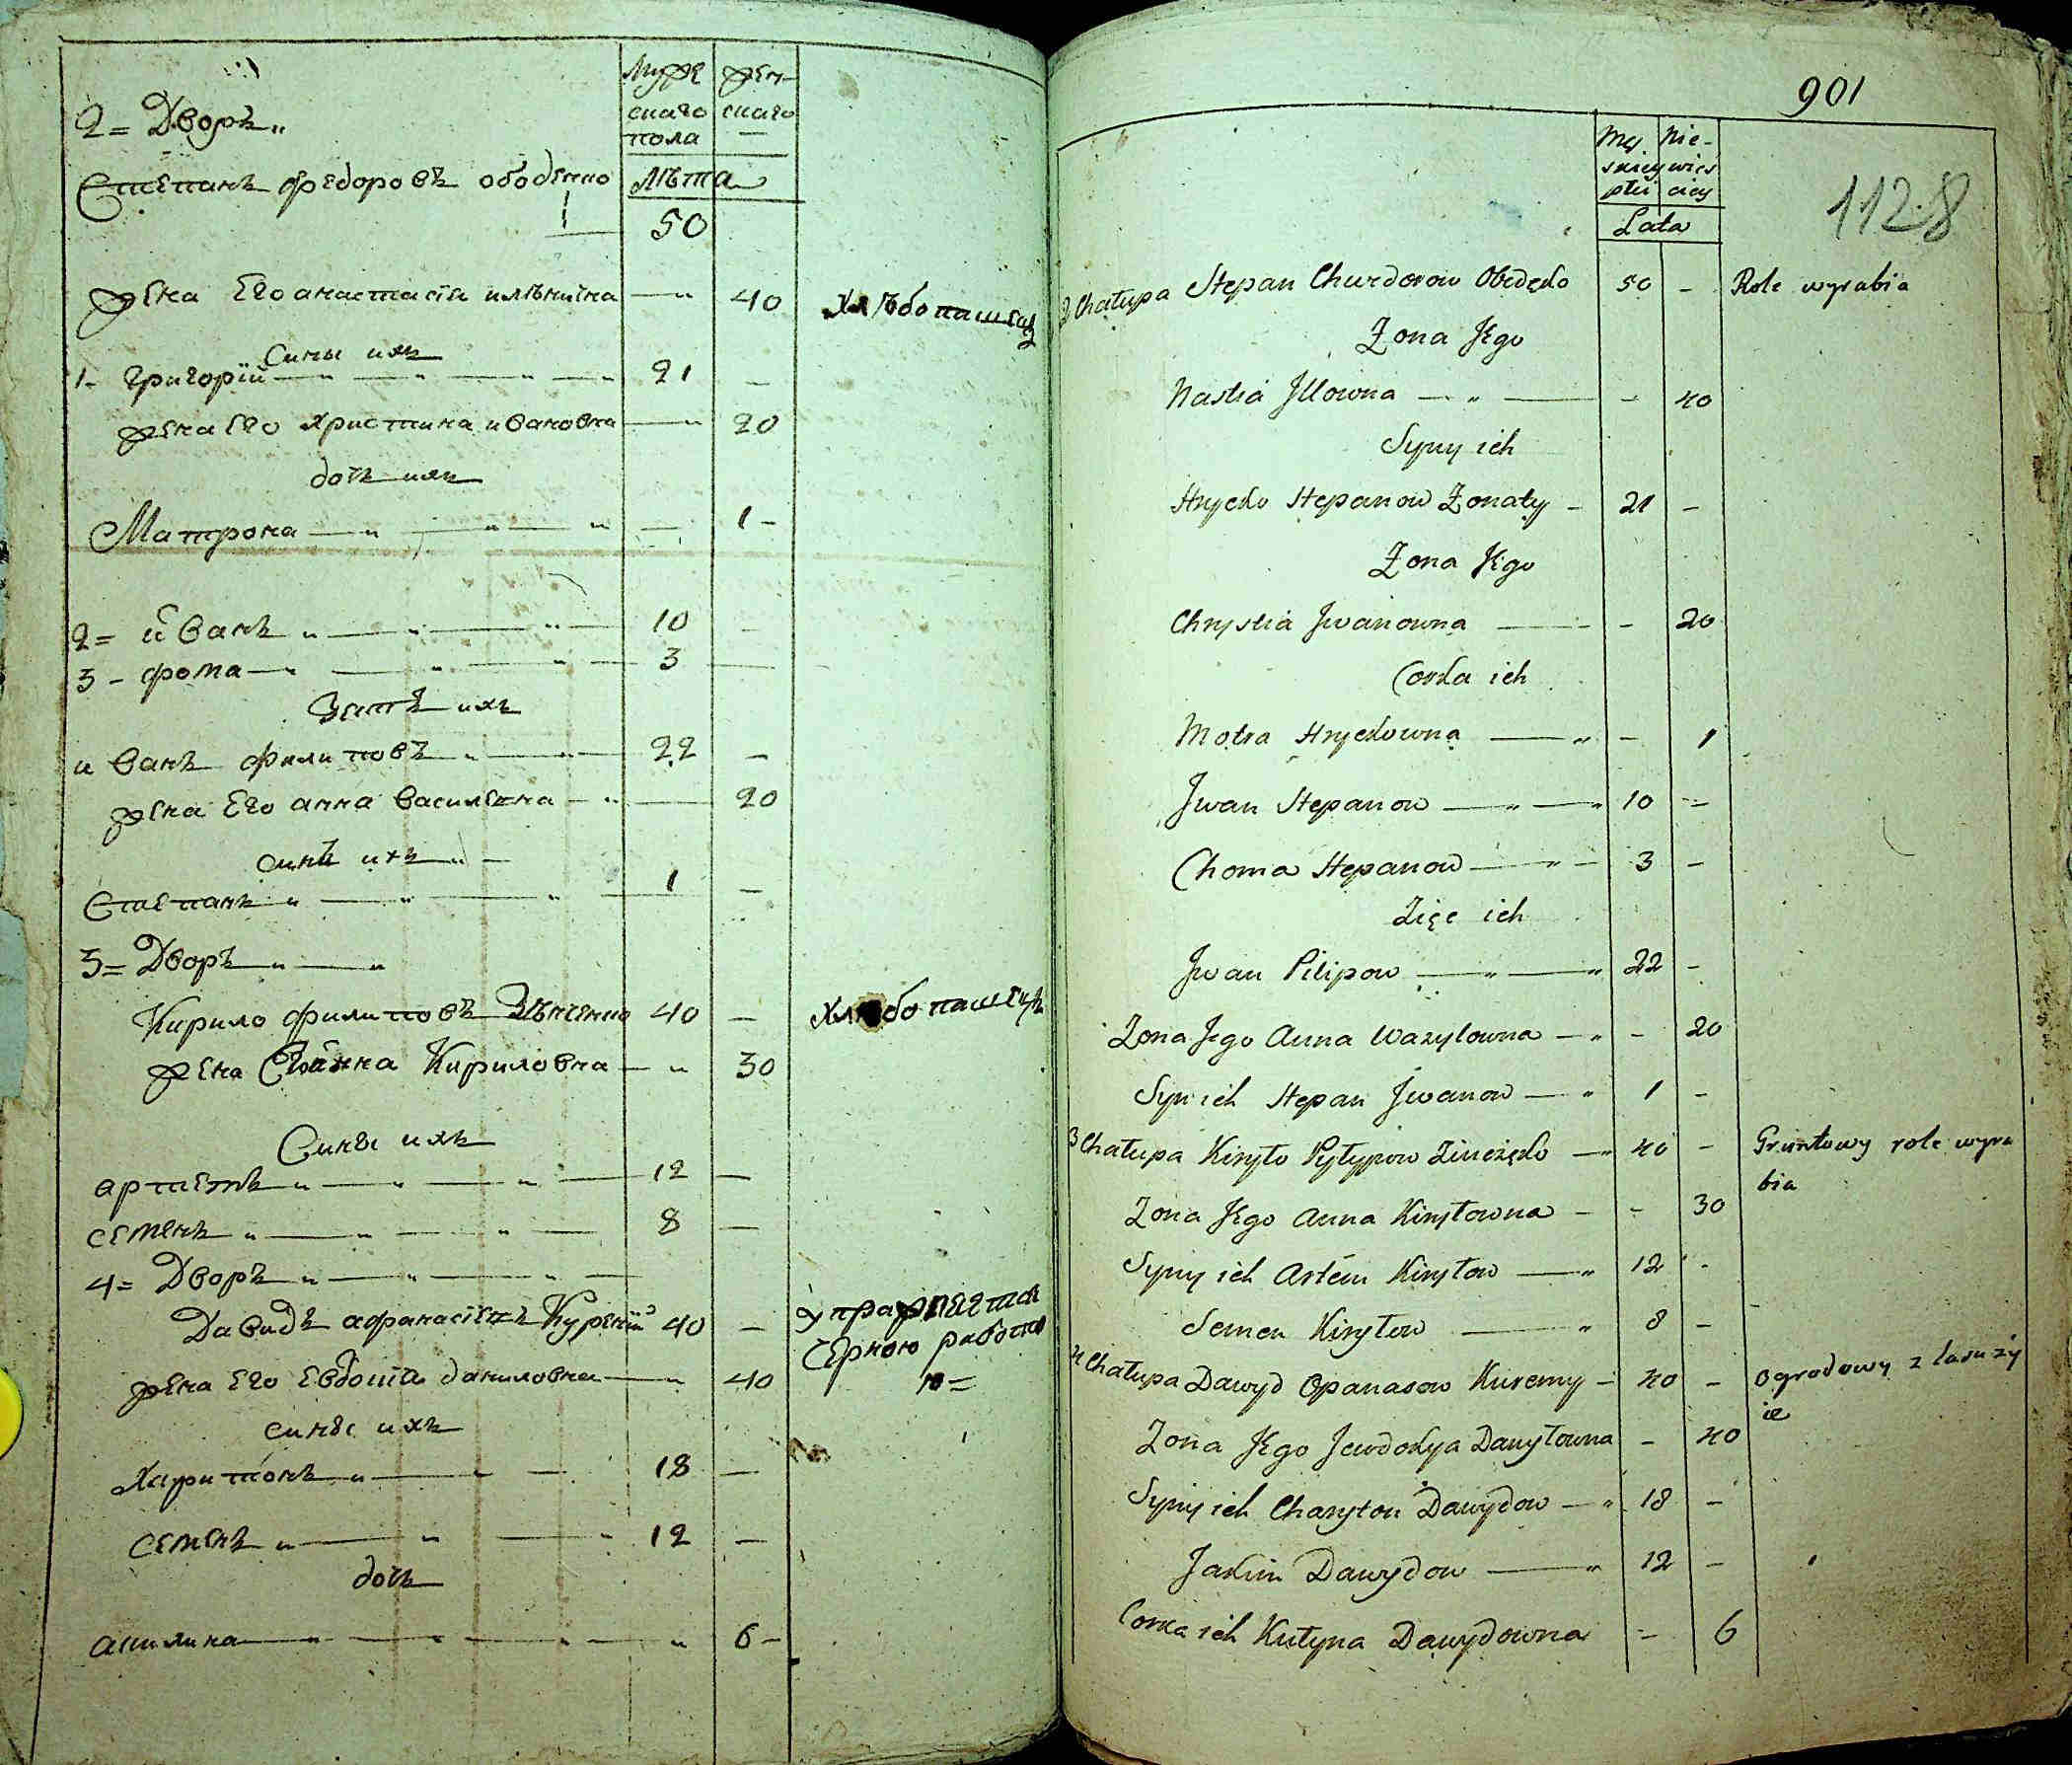 Муже женъ-
скаго скаго
пола —
Лѣта
2= Дворъ „
Степанъ Федоровъ ободенко
50
жена Его анастасія илѣнична —„ 40 Хлѣбопашецъ
Сины ихъ
1- григорій —„— —„— —„ 21 —
жена Его христина ивановна —„ 20
дочь ихъ
Матрона —„— —„— „ — 1-
2= иванъ „—„—„— 10 —
3- фома —„—„—„— 3 —
Зять ихъ
иванъ филиповъ „—„— 22 —
жена Его анна васильевна —„— 20
синъ ихъ „ —
Степанъ „—„—„— 1 —
3= Дворъ „—„
Кирило филиповъ Зѣнченко 40 — Хлѣбопашецъ
жена Его анна Кириловна —„ 30
Сины ихъ
артемъ „—„—„— 12 —
семенъ „—„—„— 8 —
4= Дворъ „—„—„—
Давидъ афанасіевъ Куреній 40 — упражняется
черною работою
жена Его Евдокія даниловна —„ 40 10=
сины ихъ
Харитонъ „—„— 18 —
семенъ „—„—„ 12 —
дочь
акилина —„—„—„—„ 6-
901
1128
Męz Nie-
skiey wies
płci ciey
Lata
2 Chałupa Stepan Chwedorow Obedeko 50 - Role wyrabia
Zona Jego
Nastia Jllowna —„— - 40
Syny ich
Hryćko Stepanow Zonaty - 21 -
Zona Jego
Chrystia Jwanowna — - 20
Corka ich
Motra Hryckowna —„ - 1
Jwan Stepanow —„—„ 10 -
Choma Stepanow —„— 3 -
Zięc ich
Jwan Pilipow —„—„ 22 -
Zona Jego Anna Wasylowna —„ - 20
Syn ich Stepan Jwanow —„ 1 -
3 Chałupa Kiryło Pyłypow Zinczęko —„ 40 - Gruntowy role wyra
bia
Zona Jego Anna Kiryłowna - - 30
Syny ich Artem Kiryłow —„ 12 -
Semen Kiryłow —„ 8 -
4 Chałupa Dawyd Opanasow Kuremy - 40 - Ogrodowy z
Zona Jego Jewdokya Danyłowna - 40
Syny ich Charyton Dawydow —„ 18 -
Jakim Dawydow —„ 12 -
Corka ich Kułyna Dawydowna - 6